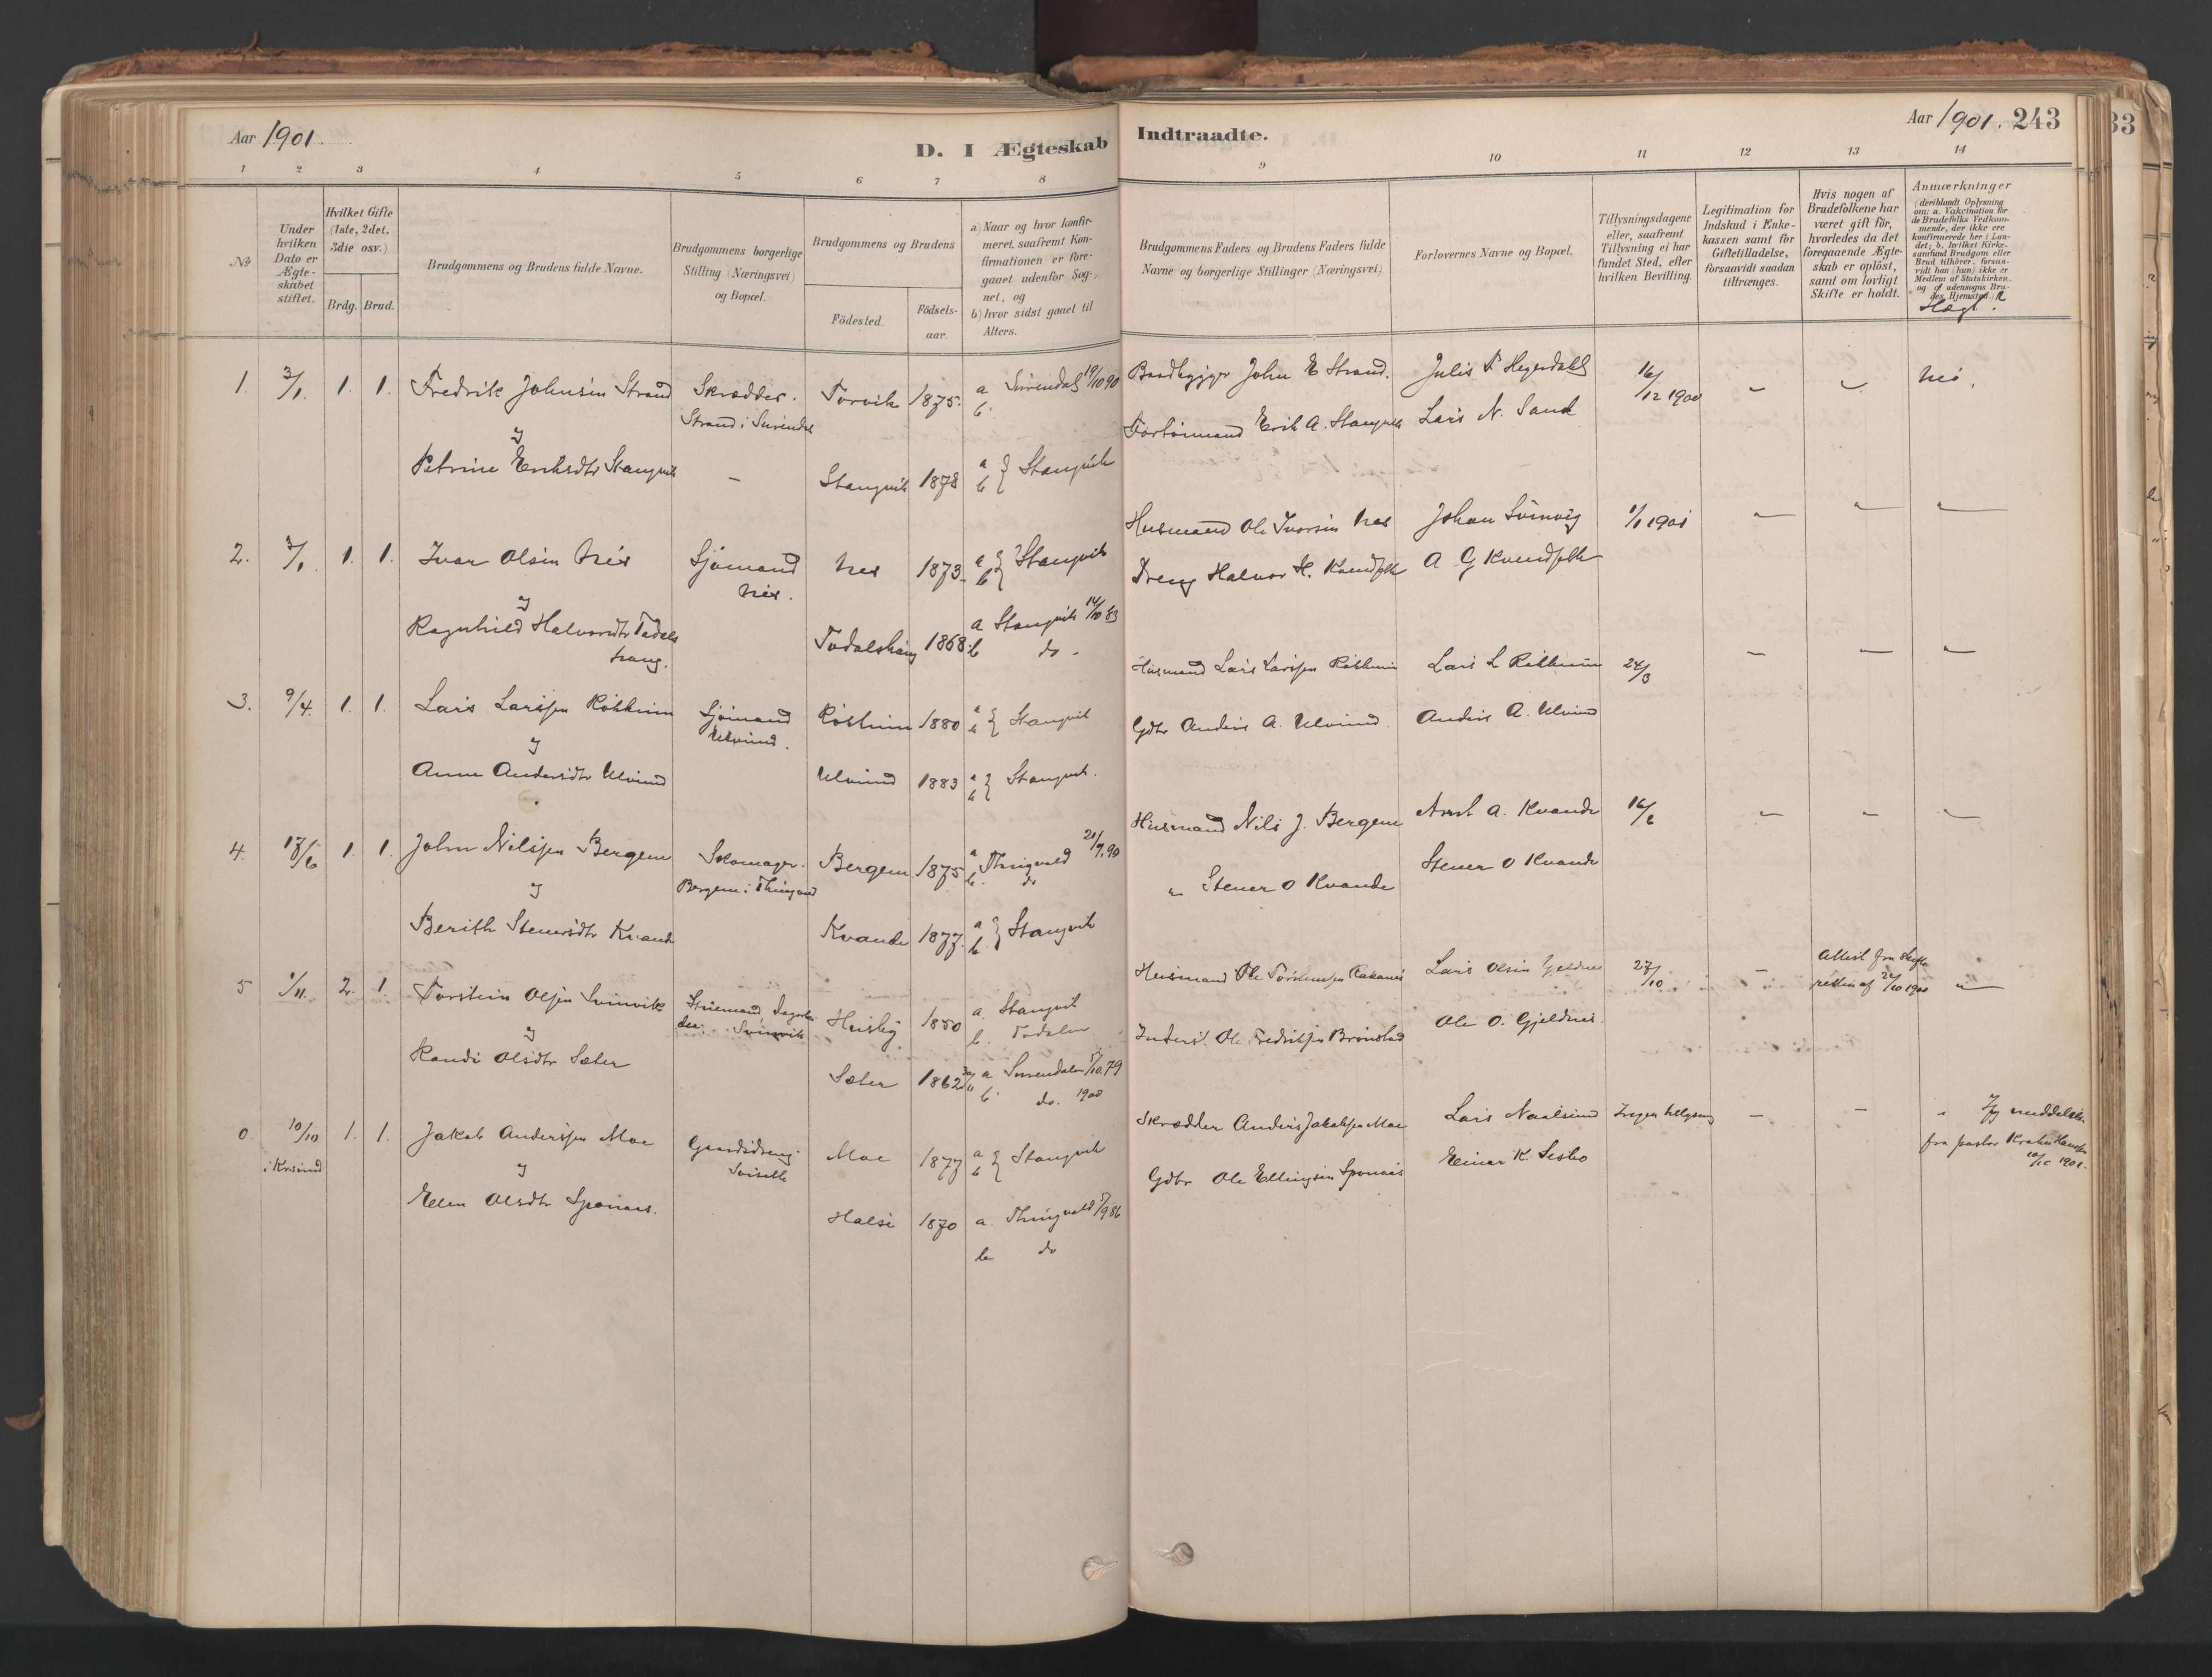 Aar 1901.
D. I Ægteskab
Indtraadte.
Aar 1901. 243
33
1 2 3 4 5 6 7 8 9 10 11 12 13 14
No
Under hvilken Dato er Ægteskabet stiftet.
Hvilket Gifte (1ste, 2det, 3die osv.)
Brdg. Brud.
Brudgommens og Brudens fulde Navne.
Brudgommens borgerlige Stilling (Næringsvei) og Bopæl.
Brudgommens og Brudens
Födested. Födsels-aar.
a) Naar og hvor konfir-
meret, saafremt Kon-
firmationen er fore-
gaaet udenfor Sog-
net, og
b) hvor sidst gaaet til
Alters.
Brudgommens Faders og Brudens Faders fulde
Navne og borgerlige Stillinger (Næringsvei)
Forlovernes Navne og Bopæl.
Tillysningsdagene
eller, saafremt
Tillysning ei har
fundet Sted, efter
hvilken Bevilling.
Legitimation for
Indskud i Enke-
kassen samt for
Giftetilladelse,
forsaavidt saadan
tiltrænges.
Hvis nogen af
Brudefolkene har
været gift för,
hvorledes da det
foregaaende Ægte-
skab er oplöst,
samt om lovligt
Skifte er holdt.
Anmærkninger
(deriblandt Oplysning
om: a. Vakcination for
de Brudefolks Vedkom-
mende, der ikke ere
konfirmerede her i Lan-
det; b. hvilket Kirke-
samfund Brudgom eller
Brud tilhörer, forsaa-
vidt han (hun) ikke er
Medlem af Statskirken,
og c. udensogns Bru-
des Hjemsted.)
1. 3/1. 1. 1. Fredrik Johnsen Strand Skrædder. Torvik 1875. a Surendal 19/10 90
b.
Strand i Surendal
Baadbygger John E Strand. 16/12 1900 - - Nei.
Lars N. Sand
Erik A. Stangvik
Petrine Eriksdtr Stangvik - Stangvik 1878 a b } Stangvik
2. 3/1. 1. 1. Ivar Olsen Nes Sjömand Nes. Nes 1873. a b } Stangvik
Husmand Ole Iversen Nes Johan Svinvig 1/1 1901 - - -
Dreng Halvor H. A G
Ragnhild Halvorsdtr Todals
haug.
Todalshaug 1868. a Stangvik 14/10 83
b do.
3. 9/4. 1. 1. Lars Larssen Sjömand Ulvund. 1880 a b } Stangvik
Husmand Lars Larssen Lars L 24/3 - - -
Anne Andersdtr Ulvund Ulvund 1883 a b } Stangvik.
Gdbr Anders A. Ulvund. Anders A. Ulvund
4. 17/6 1. 1. John Nilssen Bergem Skomager. Bergem 1875 a Thingvold 21/9.90
b. do
Bergem i Thingvold
Husmand Nils J. Bergem A. Kvande 16/6 - - -
„ Stener O Kvande Stener O Kvande
Berith Stenersdtr Kvande Kvande 1877. a b } Stangvik
5 1/11. 2. 1. Torstein Olsen Svinvik Svinvik Husby 1850 a. Stangvik
b. Todalen
Husmand Ole Lars Olsen Gjeldnes 27/10 - Attest fra Skifte-
retten af 24/10 1900
Randi Olsdtr Sæter Sæter 1862 a Surendalen 79
b. do. 1900
Ole Fredriksen Ole O. Gjeldnes.
6. 10/10 i Krsund 1. 1. Jakob Anderssen Moe Gaardsdreng. Moe 1877 a b } Stangvik
Skrædder Anders Jakobsen Moe Lars Naalsund Ingen lysning - - „ meddelelse
fra pastor
10/10 1901.
Ellen Olsdtr Sponaas. Halse 1870 a. Thingvold 5/9 86
b do
Gdbr Ole Ellingsen Sponaas Einar K.